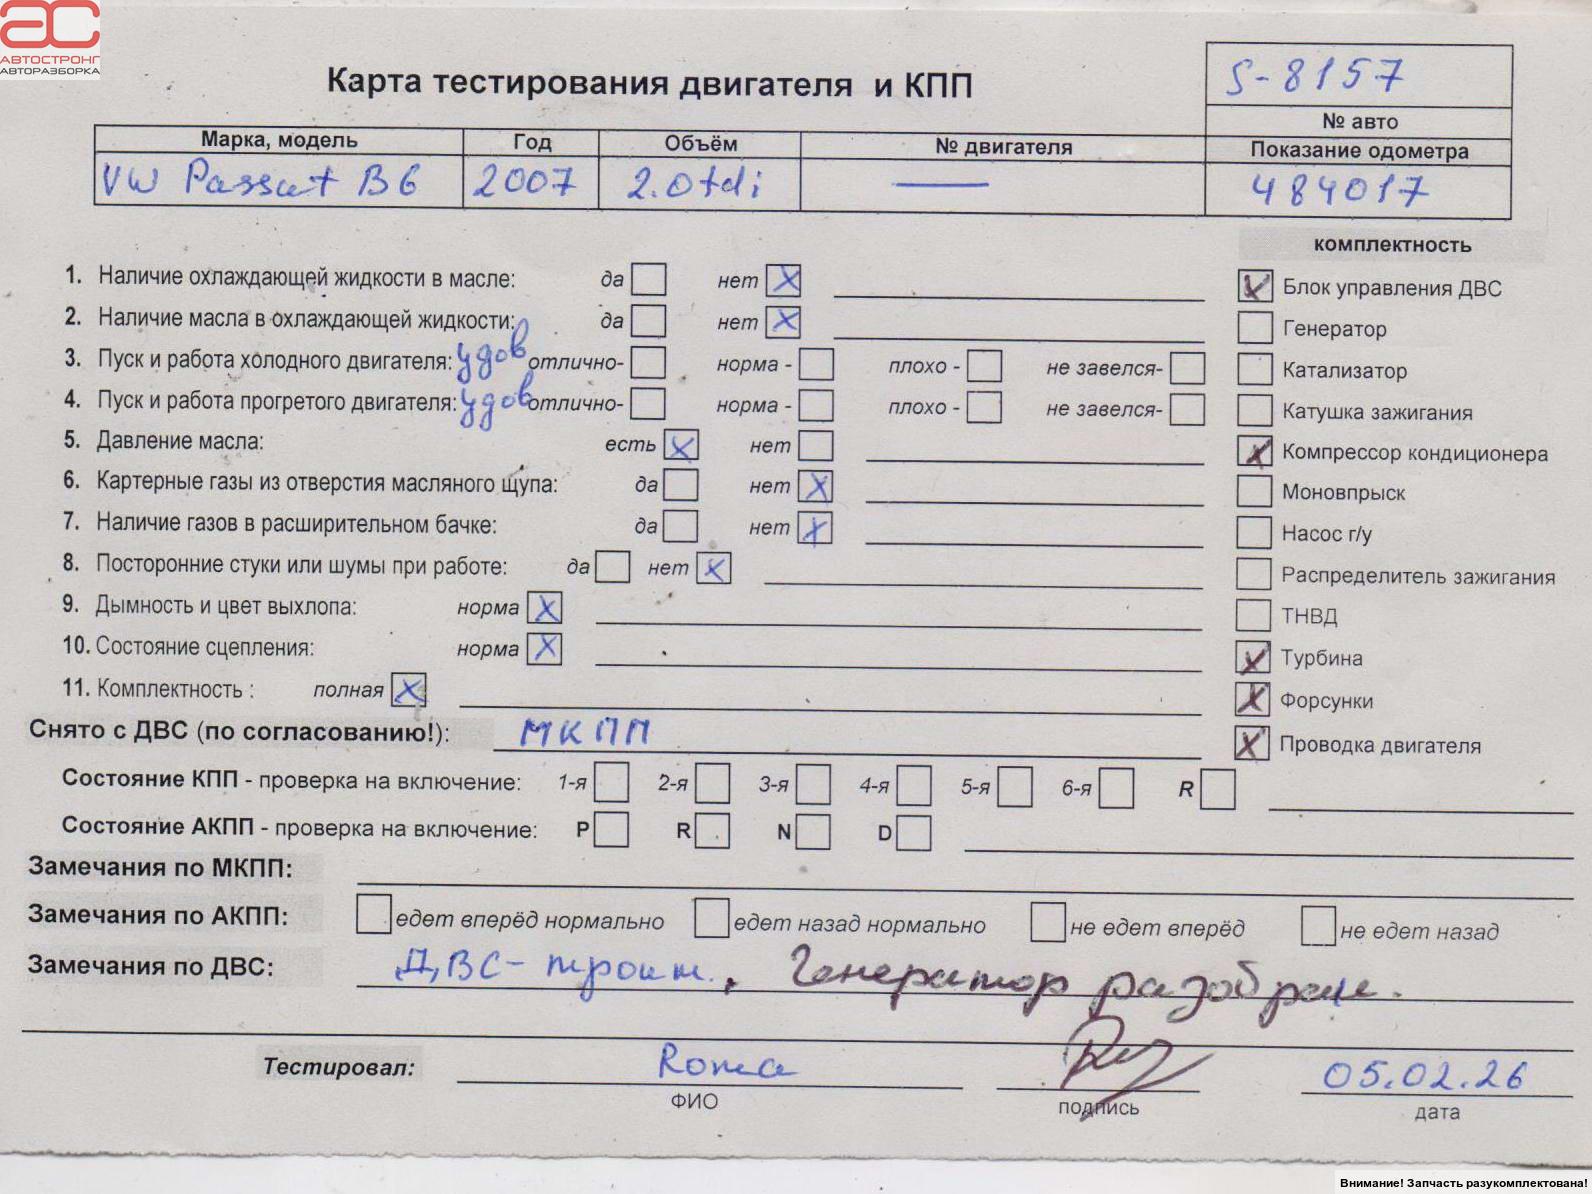 АС
АВТОСТРОНГ
АВТОРАЗБОРКА
Карта тестирования двигателя и КПП
S-8157
№ авто
Марка, модель Год Объём № двигателя Показание одометра
VW Passat B6 2007 2.0tdi — 484017
комплектность
1. Наличие охлаждающей жидкости в масле: да нет X
Блок управления ДВС
2. Наличие масла в охлаждающей жидкости: да нет X
Генератор
3. Пуск и работа холодного двигателя: удов отлично- норма - плохо - не завелся-
Катализатор
4. Пуск и работа прогретого двигателя: удов отлично- норма - плохо - не завелся-
Катушка зажигания
5. Давление масла: есть X нет
Компрессор кондиционера
6. Картерные газы из отверстия масляного щупа: да нет X
Моновпрыск
7. Наличие газов в расширительном бачке: да нет X
Насос г/у
8. Посторонние стуки или шумы при работе: да нет X
Распределитель зажигания
9. Дымность и цвет выхлопа: норма X
ТНВД
10. Состояние сцепления: норма X
Турбина
11. Комплектность : полная X
Форсунки
Снято с ДВС (по согласованию!): МКПП
Проводка двигателя
Состояние КПП - проверка на включение: 1-я 2-я 3-я 4-я 5-я 6-я R
Состояние АКПП - проверка на включение: P R N D
Замечания по МКПП:
Замечания по АКПП: едет вперёд нормально едет назад нормально не едет вперёд не едет назад
Замечания по ДВС: ДВС- троит. Генератор разобран.
Тестировал: Roma 05.02.26
ФИО подпись дата
Внимание! Запчасть разукомплектована!